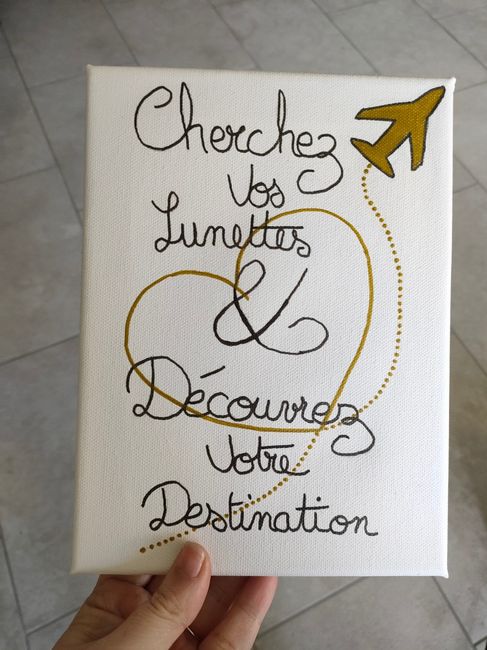 Cherchez
Vos
Lunettes
&
Découvrez
Votre
Destination